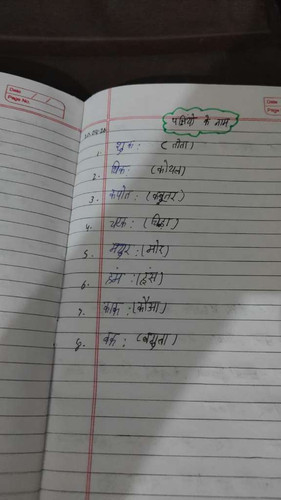 Date
Page No.
Date
Page
पक्षियों के नाम
1. शुकः (तोता)
2. पिकः (कोयल)
3. कपोतः (कबूतर
4. चटकः (चिड़ा)
5. मयूरः (मोर)
6. हंसः (हंस)
7. काकः (कौआ)
8. बकः (बगुला)